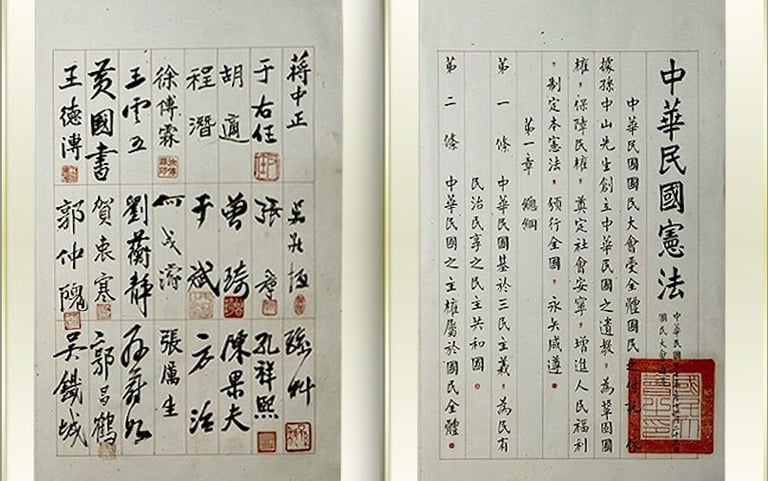 中華民國憲法
中華民國
國民大會
中華民國國民大會受全體國民之付託，依
據孫中山先生創立中華民國之遺教，為鞏固國
權，保障民權，奠定社會安寧，增進人民福利
，制定本憲法，頒行全國，永矢咸遵。
第一章 總綱
第一條 中華民國基於三民主義，為民有
民治民享之民主共和國。
第二條 中華民國之主權屬於國民全體。
蔣中正 吳敬恆 孫科
于右任 張羣 孔祥熙
胡適 曾琦 陳果夫
程潛 于斌 方治
徐傅霖 何成濬 張厲生
王雲五 劉蘅靜 孫蔚如
黃國書 賀衷寒 郭昌鶴
王德溥 郭仲隗 吳鐵城